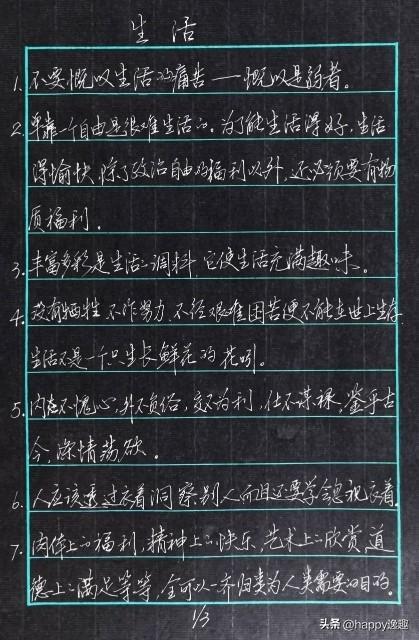 生活
1. 不要慨叹生活的痛苦——慨叹是弱者。
2. 单靠一个自由是很难生活的。为了能生活得好、生活
得愉快,除了政治自由的福利以外,还必须要有物
质福利。
3. 丰富多彩是生活的调料,它使生活充满趣味。
4. 没有牺牲、不作努力、不经艰难困苦便不能在世上生存,
生活不是一个只生长鲜花的花圃。
5. 内不愧心,外不负俗,交不为利,仕不谋禄,鉴乎古
今,涤情荡欲。
6. 人应该透过衣着洞察别人而且还要学会忽视衣着。
7. 肉体上的福利,精神上的快乐,艺术上的欣赏,道
德上的满足等等,全可以一齐归类为人类需要的目的。
1/3
头条 @happy逸趣